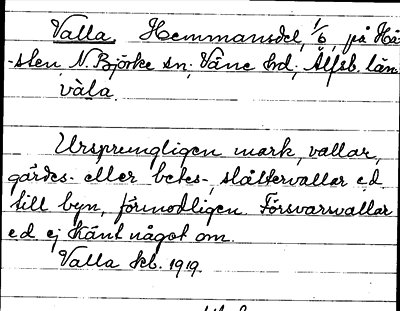 Valla, Hemmansdel, 1/6, på Hä-
-sten, N. Björke sn; Väne hrd, Älfsb. län.
vàla.
Ursprungligen mark, vallar,
gärdes- eller betes-, slåttervallar e.d.
till byn, förmodligen. Försvarsvallar
e.d. ej känt något om.
Valla kb. 1919.